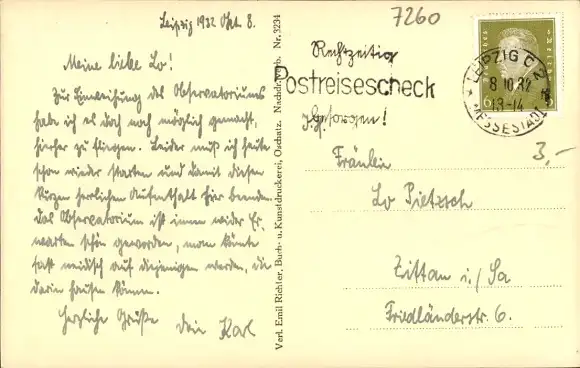 Leipzig 1932 Okt. 8.
Meine liebe Lo!
Zur Einweihung des Observatoriums
habe ich es doch noch möglich gemacht,
hierher zu fliegen. Leider muß ich heute
schon wieder starten und damit diesen
kurzen herrlichen Aufenthalt hier beenden
Das Observatorium ist immer wider Er-
warten schön geworden, man könnte
fast neidisch auf diejenigen werden, die
darin hausen können.
Herzliche Grüße
Dein Karl
Verl. Emil Richter, Buch- u. Kunstdruckerei, Oschatz. Nachdr. verb. Nr. 3234
7260
Rechtzeitig
Postreisescheck
besorgen!
LEIPZIG C 2
8.10.32
18-14
MESSESTADT
6
3,-
Fräulein
Lo Pietzsch
Zittau i./Sa
Friedländerstr. 6.